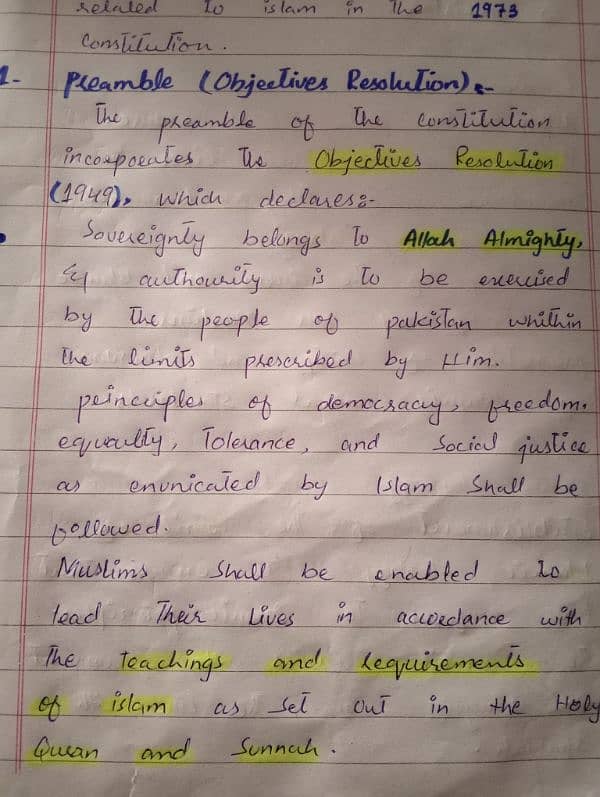 related to islam in the 1973
Constitution.
1- Preamble (Objectives Resolution):-
The preamble of the constitution
incorporates the Objectives Resolution
(1949), which declares:-
Sovereignty belongs to Allah Almighty,
& authourity is to be exercised
by the people of pakistan whithin
the limits prescribed by Him.
principles of democracy, freedom,
equality, Tolerance, and Social justice
as enunicated by Islam Shall be
followed.
Muslims Shall be enabled to
lead Their Lives in accordance with
The teachings and requirements
of islam as set out in the Holy
Quran and Sunnah.